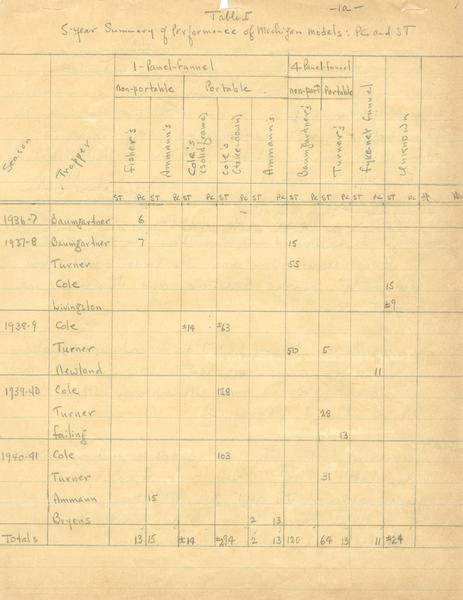 Table I -1a-
5-year Summary of Performance of Michigan models: PC and ST
1-Panel-funnel 4-Panel funnel
non-portable Portable non-port Portable
Season Trapper Fisher's Ammann's Cole's (solid frame) Cole's (take-down) Ammann's Baumgartner's Turner's fyke net funnel Unknown
ST PC ST PC ST PC ST PC ST PC ST PC ST PC ST PC ST PC
1936-7 Baumgartner 6 -
1937-8 Baumgartner 7 15
Turner 55
Cole 15
Livingston ±9
1938-9 Cole ±14 ±63
Turner 50 5
Newland 11
1939-40 Cole 128
Turner 28
Failing 13
1940-41 Cole 103
Turner 31
Ammann 15
Bryens 2 13
Totals 13 15 ±14 ±294 2 13 120 64 13 11 ±24